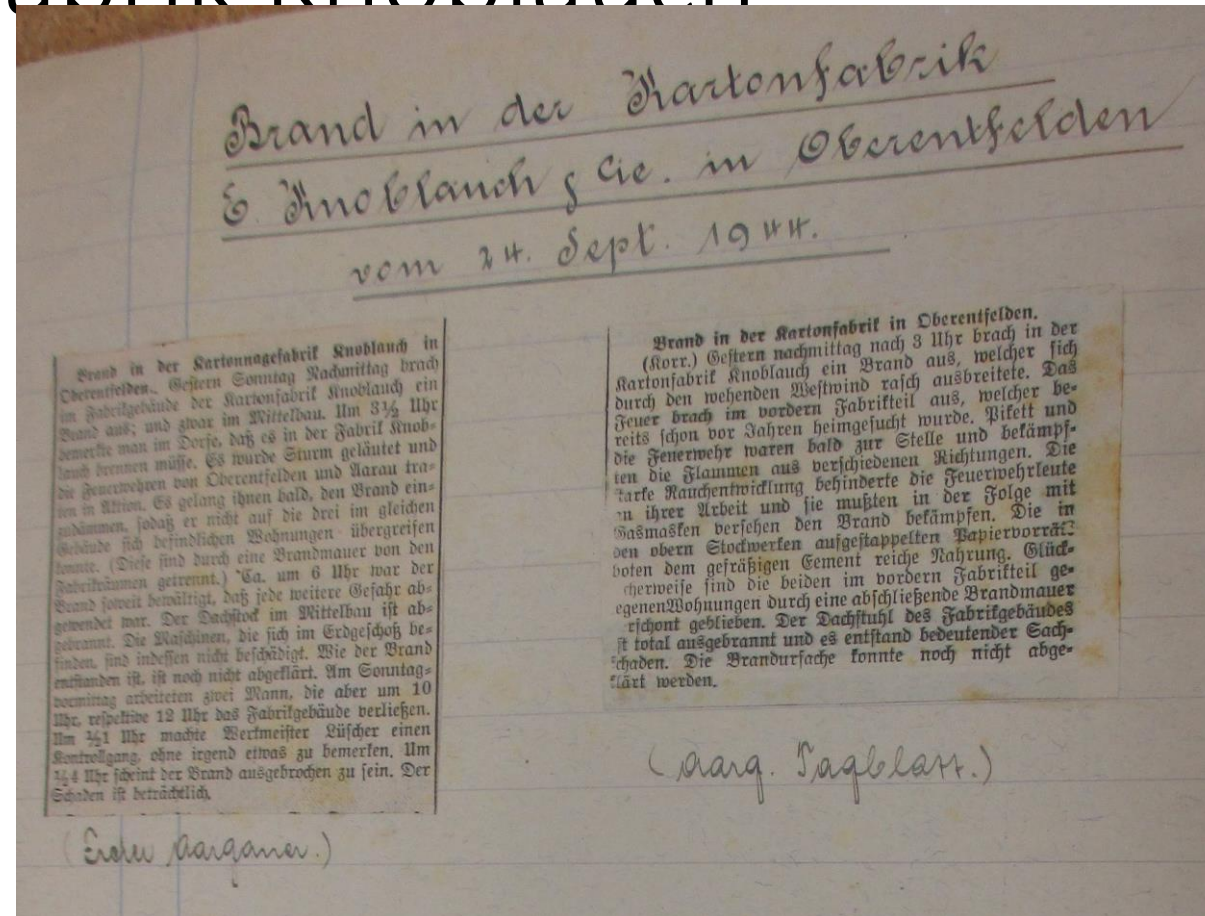 Brand in der Kartonfabrik
E. Knoblauch & Cie. in Oberentfelden
vom 24. Sept. 1944.
Brand in der Kartonnagefabrik Knoblauch in
Oberentfelden. Gestern Sonntag Nachmittag brach
im Fabrikgebäude der Kartonfabrik Knoblauch ein
Brand aus; und zwar im Mittelbau. Um 3½ Uhr
bemerkte man im Dorfe, daß es in der Fabrik Knob-
lauch brennen müsse. Es wurde Sturm geläutet und
die Feuerwehren von Oberentfelden und Aarau tra-
ten in Aktion. Es gelang ihnen bald, den Brand ein-
zudämmen, sodaß er nicht auf die drei im gleichen
Gebäude sich befindlichen Wohnungen übergreifen
konnte. (Diese sind durch eine Brandmauer von den
Fabrikräumen getrennt.) Ca. um 6 Uhr war der
Brand soweit bewältigt, daß jede weitere Gefahr ab-
gewendet war. Der Dachstock im Mittelbau ist ab-
gebrannt. Die Maschinen, die sich im Erdgeschoß be-
finden, sind indessen nicht beschädigt. Wie der Brand
entstanden ist, ist noch nicht abgeklärt. Am Sonntag-
vormittag arbeiteten zwei Mann, die aber um 10
Uhr, respektive 12 Uhr das Fabrikgebäude verließen.
Um ½1 Uhr machte Werkmeister Lüscher einen
Kontrollgang, ohne irgend etwas zu bemerken. Um
¼4 Uhr scheint der Brand ausgebrochen zu sein. Der
Schaden ist beträchtlich.
(Aargauer.)
Brand in der Kartonfabrik in Oberentfelden.
(Korr.) Gestern nachmittag nach 3 Uhr brach in der
Kartonfabrik Knoblauch ein Brand aus, welcher sich
durch den wehenden Westwind rasch ausbreitete. Das
Feuer brach im vordern Fabrikteil aus, welcher be-
reits schon vor Jahren heimgesucht wurde. Pikett und
die Feuerwehr waren bald zur Stelle und bekämpf-
ten die Flammen aus verschiedenen Richtungen. Die
tarke Rauchentwicklung behinderte die Feuerwehrleute
n ihrer Arbeit und sie mußten in der Folge mit
Gasmasken versehen den Brand bekämpfen. Die in
den obern Stockwerken aufgestappelten Papiervorrät
boten dem gefräßigen Eement reiche Nahrung. Glück-
cherweise sind die beiden im vordern Fabrikteil ge-
egenen Wohnungen durch eine abschließende Brandmauer
rschont geblieben. Der Dachstuhl des Fabrikgebäudes
st total ausgebrannt und es entstand bedeutender Sach-
schaden. Die Brandursache konnte noch nicht abge-
klärt werden.
(Aarg. Tagblatt.)